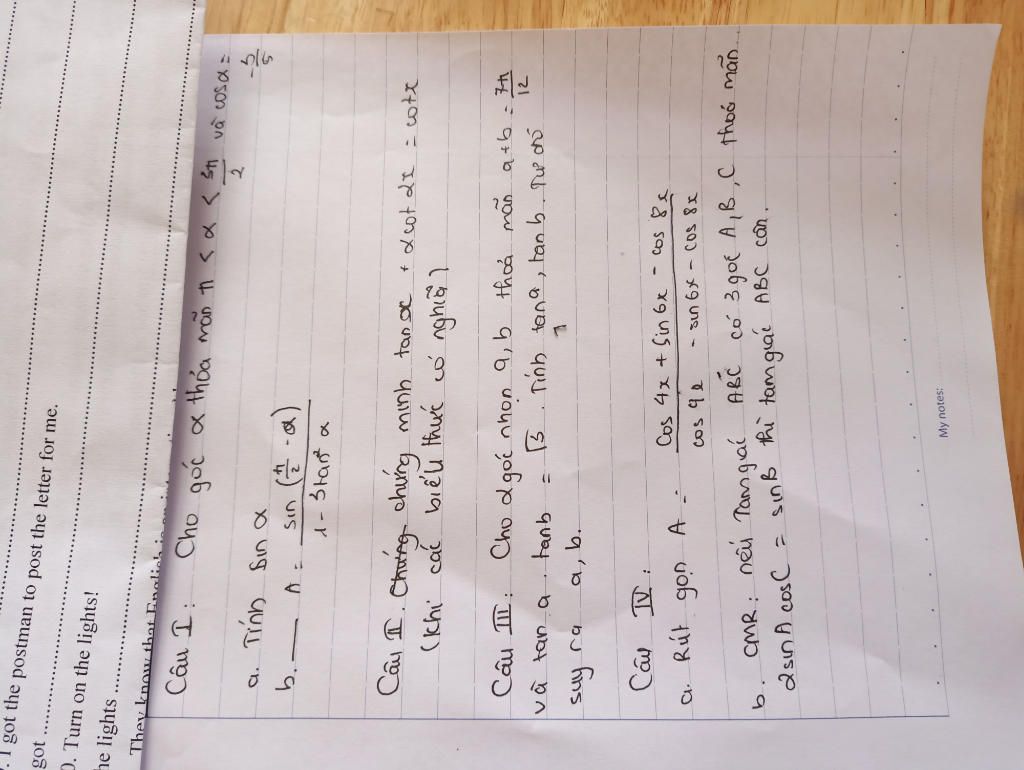 . I got the postman to post the letter for me.
got
0. Turn on the lights!
he lights
They know that English
Câu I : Cho góc α thỏa mãn π < α < 3π/2 và cosα = -3/5
a. Tính sin α
b. A = sin (π/2 - α) / 1 - 3tan² α
Câu II. Chứng chứng minh tanx + 2cot 2x = cotx
(khi các biểu thức có nghĩa)
Câu III : Cho 2 góc nhọn a, b thoả mãn a+b = 7π/12
và tan a. tanb = √3 . Tính tana, tanb. Từ đó
suy ra a, b.
Câu IV :
a. Rút gọn A = cos 4x + sin 6x - cos 8x / cos 4x - sin 6x - cos 8x
b. CMR : nếu Tam giác ABC có 3 góc A, B, C thoả mãn
2sin A cos C = sin B thì tam giác ABC cân.
My notes: